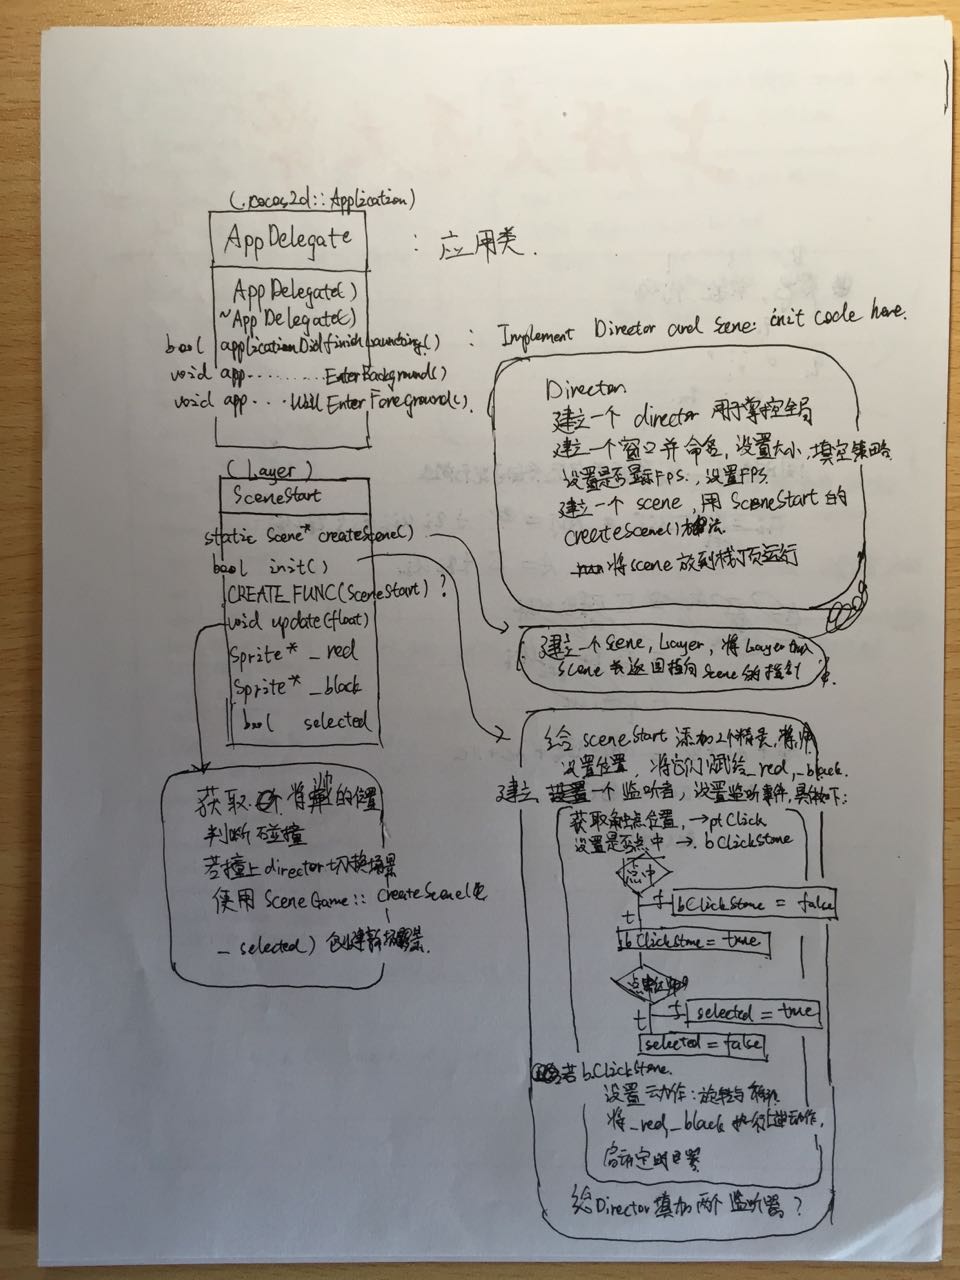 (cocos2d::Application)
AppDelegate
: 应用类.
AppDelegate()
~AppDelegate()
bool applicationDidfinishLaunching()
: Implement Director and Scene init code here.
void app.........EnterBackground()
void app....Will EnterForeground()
Director
建立一个 director 用于掌控全局
建立一个窗口并命名, 设置大小, 填空策略
设置是否显示FPS., 设置FPS.
建立一个 scene, 用 SceneStart 的
createScene()方法
将scene放到栈顶运行
(Layer)
SceneStart
static Scene* createScene()
bool init()
CREATE_FUNC(SceneStart) ?
void update(float)
Sprite* _red
Sprite* _black
bool selected
建立一个Scene, Layer, 将Layer
Scene 返回指向Scene的指针
给 sceneStart 添加2个精灵,
设置位置, 将它们赋给_red, _black.
建立一个监听者, 设置监听事件, 具体如下:
获取触点位置, → ptClick
设置是否点中 → bClickStone
点中
f
bClickStone = false
t
bClickStone = true
f
selected = true
t
selected = false
若 bClickStone.
设置动作: 旋转与移动
将_red, _black 执行上述动作,
启动定时器
给Director 填加两个监听器?
获取 将帅的位置
判断碰撞
若撞上director切换场景
使用 SceneGame:: CreateScene(
_selected) 创建新场景